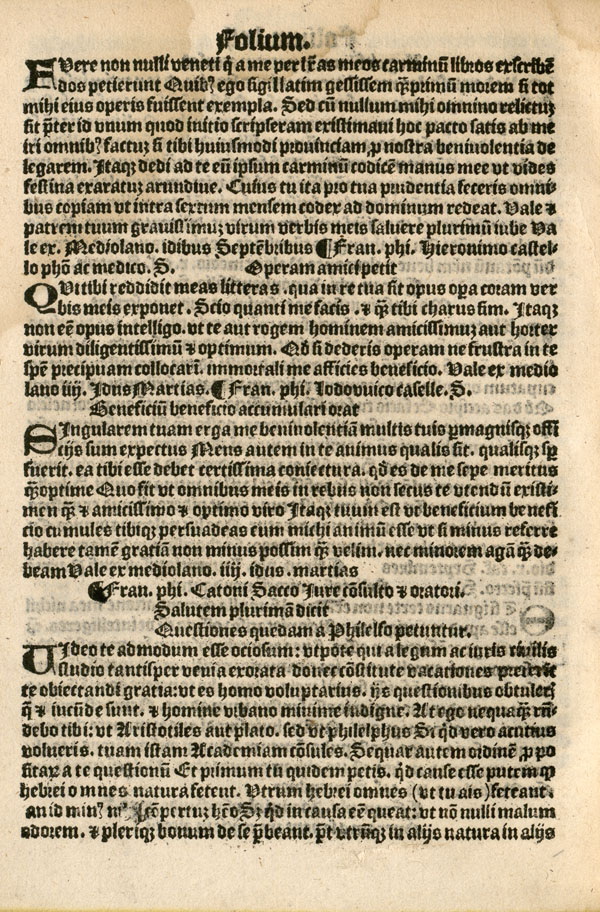 Folium.
FVere non nulli veneti q̇ a me per lr̃as meos carminũ libros exscribẽ
dos petierunt Quibꝰ ego sigillatim gessissem q̃ȝprimũ morem si tot
mihi eius operis fuissent exempla. Sed cũ nullum mihi omnino relictuȝ
sit p̃ter id vnum quod initio scripseram existimavi hoc pacto satis ab me
iri omnibꝰ factuȝ si tibi huiusmodi prouinciam ꝓ nostra beniuolentia de
legarem. Itaqȝ dedi ad te eũ ipsum carminũ codicẽ manus mee vt vides
festina exaratuȝ arundine. Cuius tu ita pro tua prudentia feceris omni-
bus copiam vt intra sextum mensem codex ad dominum redeat. Vale ⁊
patrem tuum grauissimuȝ virum verbis meis saluere plurimũ iube Va
le ex. Mediolano. idibus Septẽbribus ¶ Fran. phi. Hieronimo castel-
lo phõ ac medico. S. Operam amici petit
QVi tibi reddidit meas litteras. qua in re tua sit opus opa coram ver
bis meis exponet. Scio quanti me facis. ⁊ q̃ȝ tibi charus sim. Itaqȝ
non eẽ opus intelligo. vt te aut rogem hominem amicissimuȝ aut horter
virum diligentissimũ ⁊ optimum. Qð si dederis operam ne frustra in te
spẽ precipuam collocari. immortali me afficies beneficio. Vale ex medio
lano iiij. Idus Martias. ¶ Fran. phi. Lodouico caselle. S.
Beneficiũ beneficio accumulari orat
SIngularem tuam erga me beniuolentiã multis tuis ꝑmagnisqȝ offi
cijs sum expectus Mens autem in te animus qualis sit. qualisqȝ sꝑ
fuerit. ea tibi esse debet certissima coniectura. qð es de me sepe meritus
q̃ȝoptime Quo fit vt omnibus meis in rebus non secus te vtendũ existi-
men q̃ȝ ⁊ amicissimo ⁊ optimo viro Itaqȝ tuum est vt beneficium benefi
cio cumules tibiqȝ persuadeas eum michi animũ esse vt si minus referre
habere tamẽ gratiã non minus possim q̃ȝ velim. nec minorem agã q̃ȝ de-
beam Vale ex mediolano. iiij. idus. martias
¶ Fran. phi. Catoni Sacco Iure cõsulto ⁊ oratori.
Salutem plurimã dicit
Questiones quedam a Philelfo petuntur.
VIdeo te admodum esse ociosum: vtpote qui a legum ac iuris ciuilis
studio tantisper venia exorata donec cõstitute vacationes
te obiectandi gratia: vt es homo voluptarius. ijs questionibus obtulerȝ
q̃ ⁊ iucũde sunt. ⁊ homine vrbano minime indigne. At ego nequaq̃ȝ rñ-
debo tibi: vt Aristotiles aut plato. sed vt philelphus Si qð vero acutius
volueris. tuam istam Academiam cõsules. Sequar autem ordinẽ ꝓpo
sitaȝ a te questionũ Et primum tũ quidem petis. qð cause esse putem ꝙ
hebrei omnes natura fetent. Vtrum hebrei omnes (vt tu ais) feteant.
an id minꝰ Si qð in causa eẽ queat: vt nõ nulli malum
odorem. ⁊ pleriqȝ bonum de se p̃beant. p̃t vtrũqȝ in alijs natura in alijs